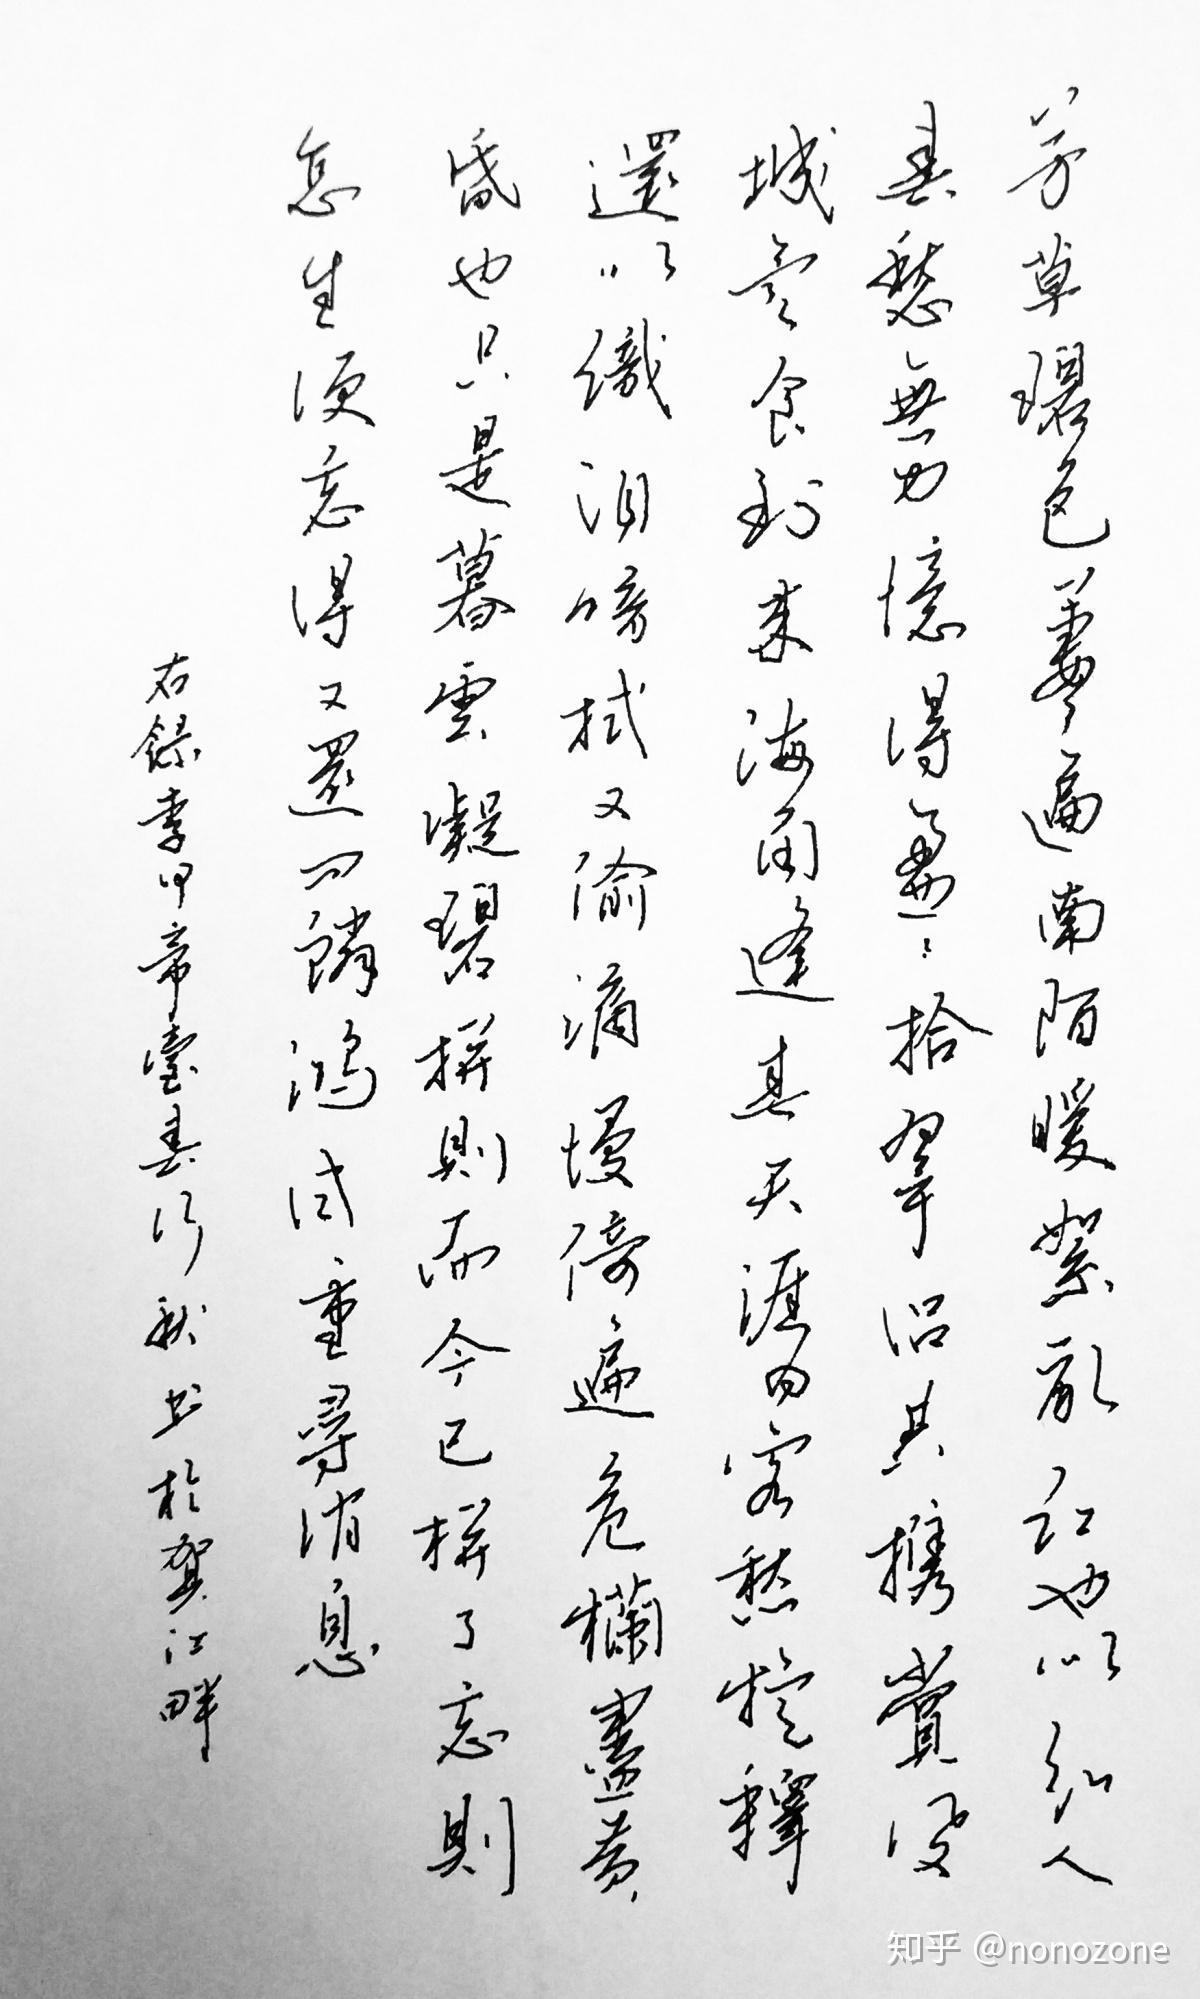 芳草碧色萋萋遍南陌暖絮亂紅也似知人
春愁無力憶得盈盈拾翠侶共攜賞鳳
城寒食到來海角逢春天涯为客愁旋釋
還似織泪暗拭又偷滴漫倚遍危欄盡黃
昏也只是暮雲凝碧拼則而今已拼了忘則
怎生便忘得又還问鱗鴻试重尋消息
右錄李甲帝臺春 秋书於賀江畔
知乎 @nonozone